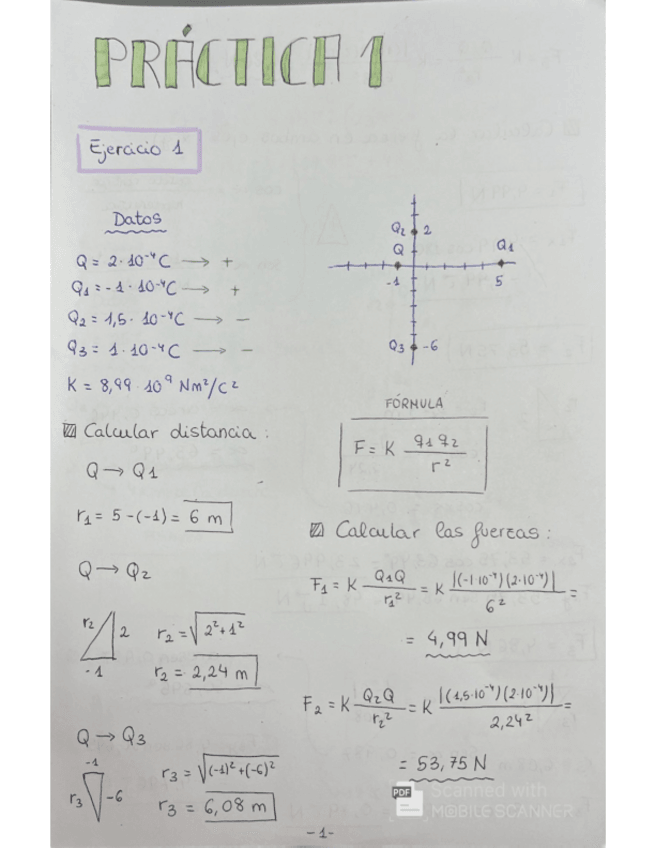 PRÁCTICA 1
Ejercicio 1
Datos
Q = 2·10⁻⁴C ⟶ +
Q1 = -1·10⁻⁴C ⟶ +
Q2 = 1,5·10⁻⁴C ⟶ −
Q3 = 1·10⁻⁴C ⟶ −
K = 8,99·10⁹ Nm²/C²
Q2 2
Q Q1
-1 5
Q3 -6
FÓRMULA
F = K q1 q2 / r²
Calcular distancia:
Q → Q1
r1 = 5 -(-1) = 6 m
Q → Q2
r2 2 -1
r2 = √2²+1²
r2 = 2,24 m
Q → Q3
-1
r3 -6
r3 = √(-1)²+(-6)²
r3 = 6,08 m
Calcular las fuerzas:
F1 = K Q1Q / r1² = K |(-1·10⁻⁴)(2·10⁻⁴)| / 6² =
= 4,99 N
F2 = K Q2Q / r2² = K |(1,5·10⁻⁴)(2·10⁻⁴)| / 2,24² =
= 53,75 N
PDF Scanned with
MOBILE SCANNER
-1-